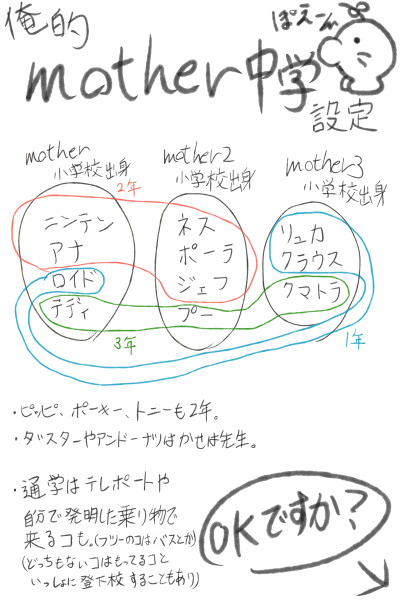 俺的
ぽえーん
mother中学
設定
mother
小学校出身
mother2
小学校出身
mother3
小学校出身
2年
ニンテン
アナ
ロイド
テディ
ネス
ポーラ
ジェフ
プー
リュカ
クラウス
クマトラ
3年
1年
・ピッピ、ポーキー、トニーも2年。
・ダスターやアンドーナツはかせは先生。
・通学はテレポートや
自分で発明した乗り物で
来るコも。(フツーのコはバスとか)
(どっちもないコはもってるコと
いっしょに登下校することもあり)
OKですか?